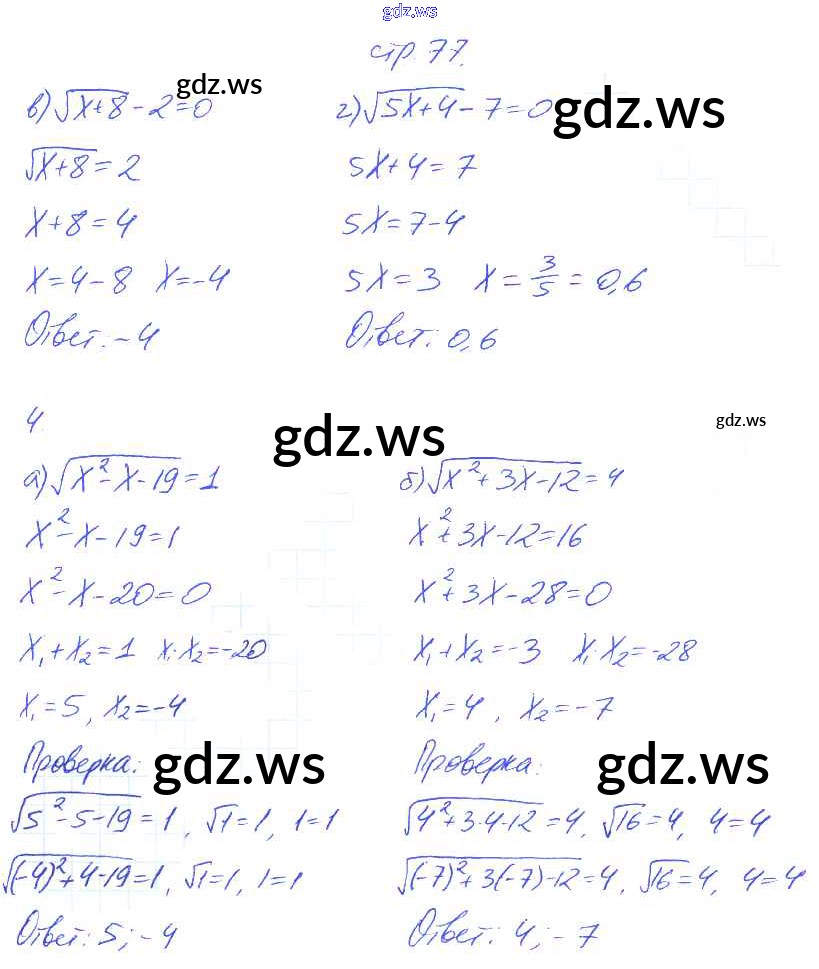 gdz.ws
стр. 77.
gdz.ws
в) √(x+8) - 2 = 0
√(x+8) = 2
x+8 = 4
x = 4-8 x = -4
Ответ: -4
г) √(5x+4) - 7 = 0
gdz.ws
5x+4 = 7
5x = 7-4
5x = 3 x = 3/5 = 0,6
Ответ: 0,6
4.
gdz.ws
gdz.ws
а) √(x²-x-19) = 1
x²-x-19 = 1
x²-x-20 = 0
x₁+x₂ = 1 x₁·x₂ = -20
x₁ = 5, x₂ = -4
Проверка:
gdz.ws
√(5²-5-19) = 1, √1 = 1, 1 = 1
√((-4)²+4-19) = 1, √1 = 1, 1 = 1
Ответ: 5; -4
б) √(x²+3x-12) = 4
x²+3x-12 = 16
x²+3x-28 = 0
x₁+x₂ = -3 x₁·x₂ = -28
x₁ = 4, x₂ = -7
Проверка:
gdz.ws
√(4²+3·4-12) = 4, √16 = 4, 4 = 4
√((-7)²+3(-7)-12) = 4, √16 = 4, 4 = 4
Ответ: 4; -7